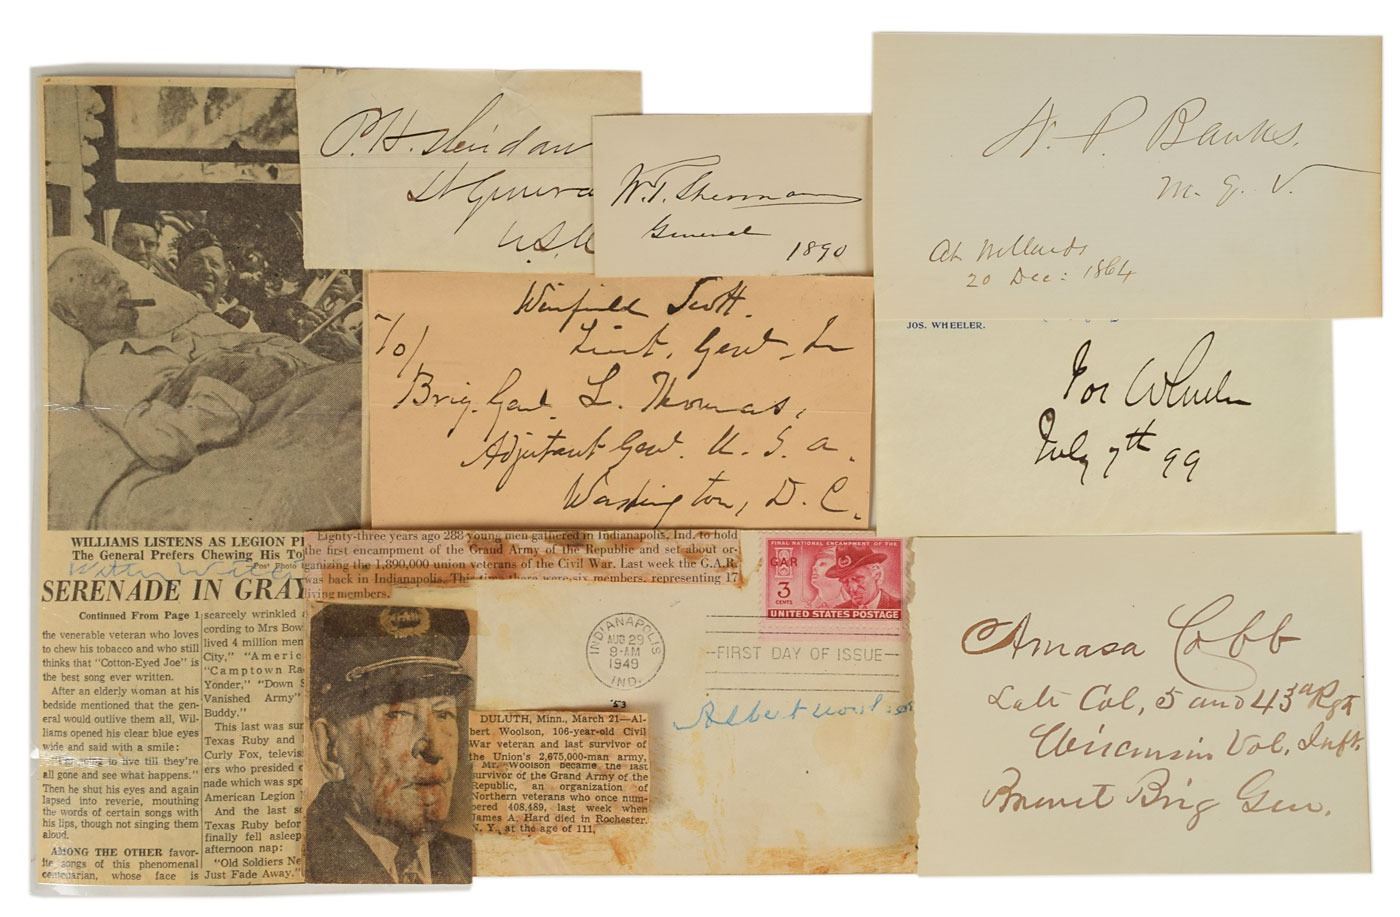 P. H. Sheridan
Lt General
U.S.A
W. T. Sherman
General
1890
N. P. Banks.
M. G. V.
At Willards
20 Dec: 1864
Winfield Scott.
To/
Lieut. Genl.
Brig. Genl. L. Thomas,
Adjutant Genl. U. S. A.
Washington, D. C.
JOS. WHEELER.
Jos Wheeler
July 7th 99
WILLIAMS LISTENS AS LEGION
The General Prefers Chewing His
Post Photo
SERENADE IN GRAY
Continued From Page 1
the venerable veteran who loves
to chew his tobacco and who still
thinks that "Cotton-Eyed Joe" is
the best song ever written.
After an elderly woman at his
bedside mentioned that the gen-
eral would outlive them all, Wil-
liams opened his clear blue eyes
wide and said with a smile:
to live till they're
all gone and see what happens."
Then he shut his eyes and again
lapsed into reverie, mouthing
the words of certain songs with
his lips, though not singing them
aloud.
AMONG THE OTHER favor-
ite songs of this phenomenal
centenarian, whose face is
scarcely wrinkled
cording to Mrs
lived 4 million men
City," "Americ
"Camptown Ra
Yonder," "Down
Vanished Army"
Buddy."
This last was
Texas Ruby and
Curly Fox, televis
ers who presided
nade which was
American Legion
And the last
Texas Ruby befor
finally fell asleep
afternoon nap:
"Old Soldiers Ne
Just Fade Away."
Eighty-three years ago 288 young men gathered in Indianapolis, Ind. to hold
the first encampment of the Grand Army of the Republic and set about or-
ganizing the 1,890,000 union veterans of the Civil War. Last week the G.A.R.
was back in Indianapolis. This time there were six members, representing 17
living members.
FINAL NATIONAL ENCAMPMENT OF THE
GAR
3
CENTS
UNITED STATES POSTAGE
INDIANAPOLIS
AUG 29
9-AM
1949
IND.
FIRST DAY OF ISSUE
Albert Woolson
'53
DULUTH, Minn., March 21—Al-
bert Woolson, 106-year-old Civil
War veteran and last survivor of
the Union's 2,675,000-man army,
Mr. Woolson became the last
survivor of the Grand Army of the
Republic, an organization of
Northern veterans who once num-
bered 408,489, last week when
James A. Hard died in Rochester.
N. Y., at the age of 111.
Amasa Cobb
Late Col, 5 and 43d Rgt
Wisconsin Vol, Inft.
Brevet Brig Gen.